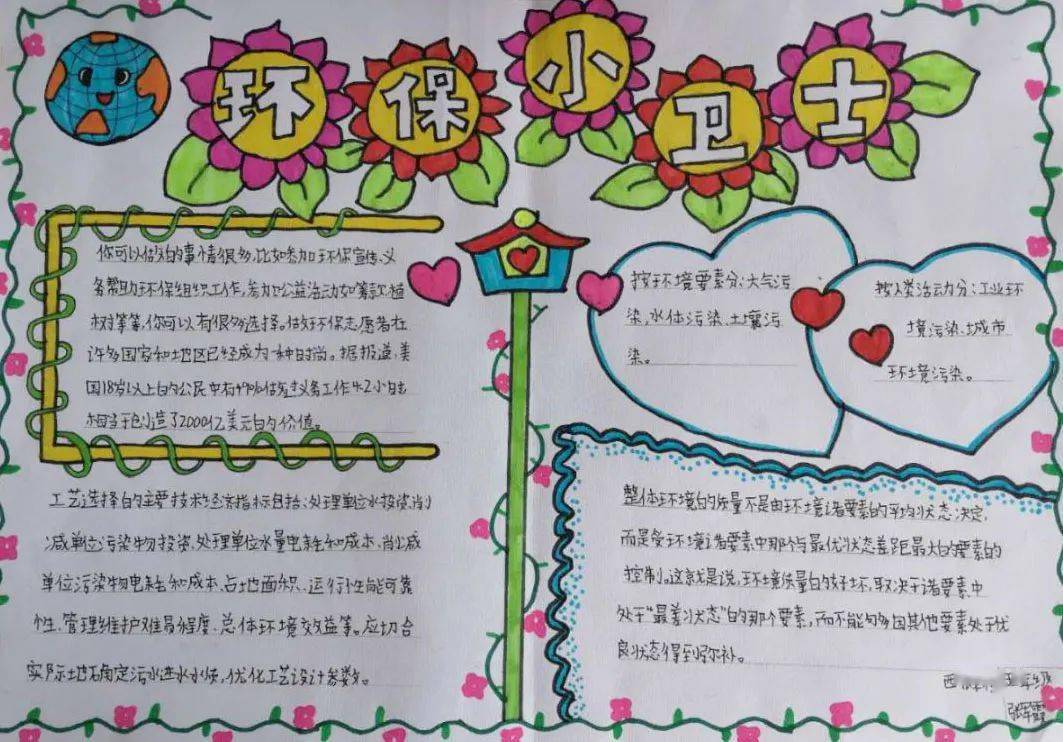 环保小卫士
你可以做的事情很多,比如参加环保宣传、义
务帮助环保组织工作,参加公益活动如筹款、植
树等等,你可以有很多选择。做好环保志愿者在
许多国家和地区已经成为一种时尚。据报道,美
国18岁以上的公民中有49%做过义务工作4.2小时
相当于创造了2000亿美元的价值。
按环境要素分:大气污
染,水体污染、土壤污
染。
按人类活动分:工业环
境污染、城市
环境污染。
工艺选择的主要技术经济指标包括:处理单位水投资,削
减单位污染物投资,处理单位水量电耗和成本,削减
单位污染物电耗和成本、占地面积、运行性能可靠
性、管理维护难易程度、总体环境效益等。应切合
实际地确定污水进水水质,优化工艺设计参数。
整体环境的质量不是由环境诸要素的平均状态决定,
而是受环境诸要素中那个与最优状态差距最大的要素的
控制。这就是说,环境质量的好坏,取决于诸要素中
处于“最差状态”的那个要素,而不能够因其他要素处于优
良状态得到弥补。
年级